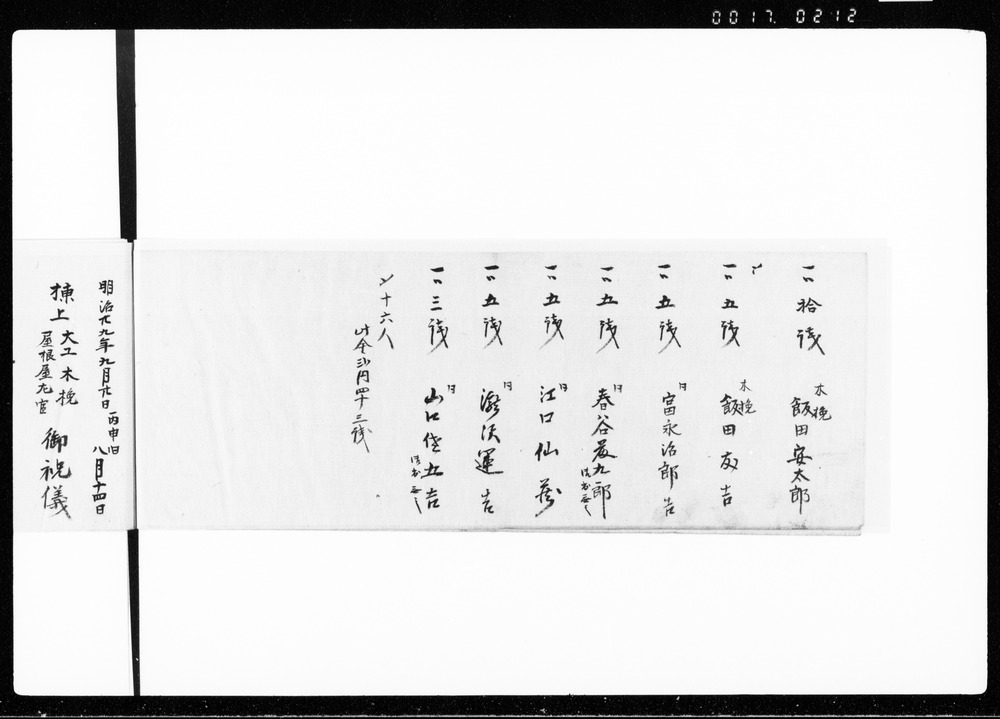 0017 0212
一 拾銭 木挽 飯田安太郎
一 五銭 木挽 飯田友吉
一 五銭 同 富永治郎吉
一 五銭 同 春谷 九郎
一 五銭 同 江口仙蔵
一 五銭 同 運吉
一 三銭 同 山口 五吉
〆十六人
此金 円四十三銭
明治廿九年九月廿日 丙申旧八月十四日
棟上 大工木挽 御祝儀
屋根屋左官